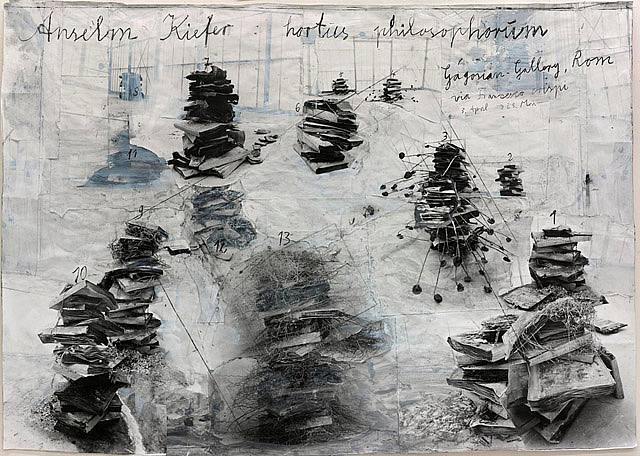 Anselm Kiefer : hortus philosophorum
Gagosian Gallery, Rom
via Francesco Crispi
7
5
6
3
2
11
9
12
13
1
10